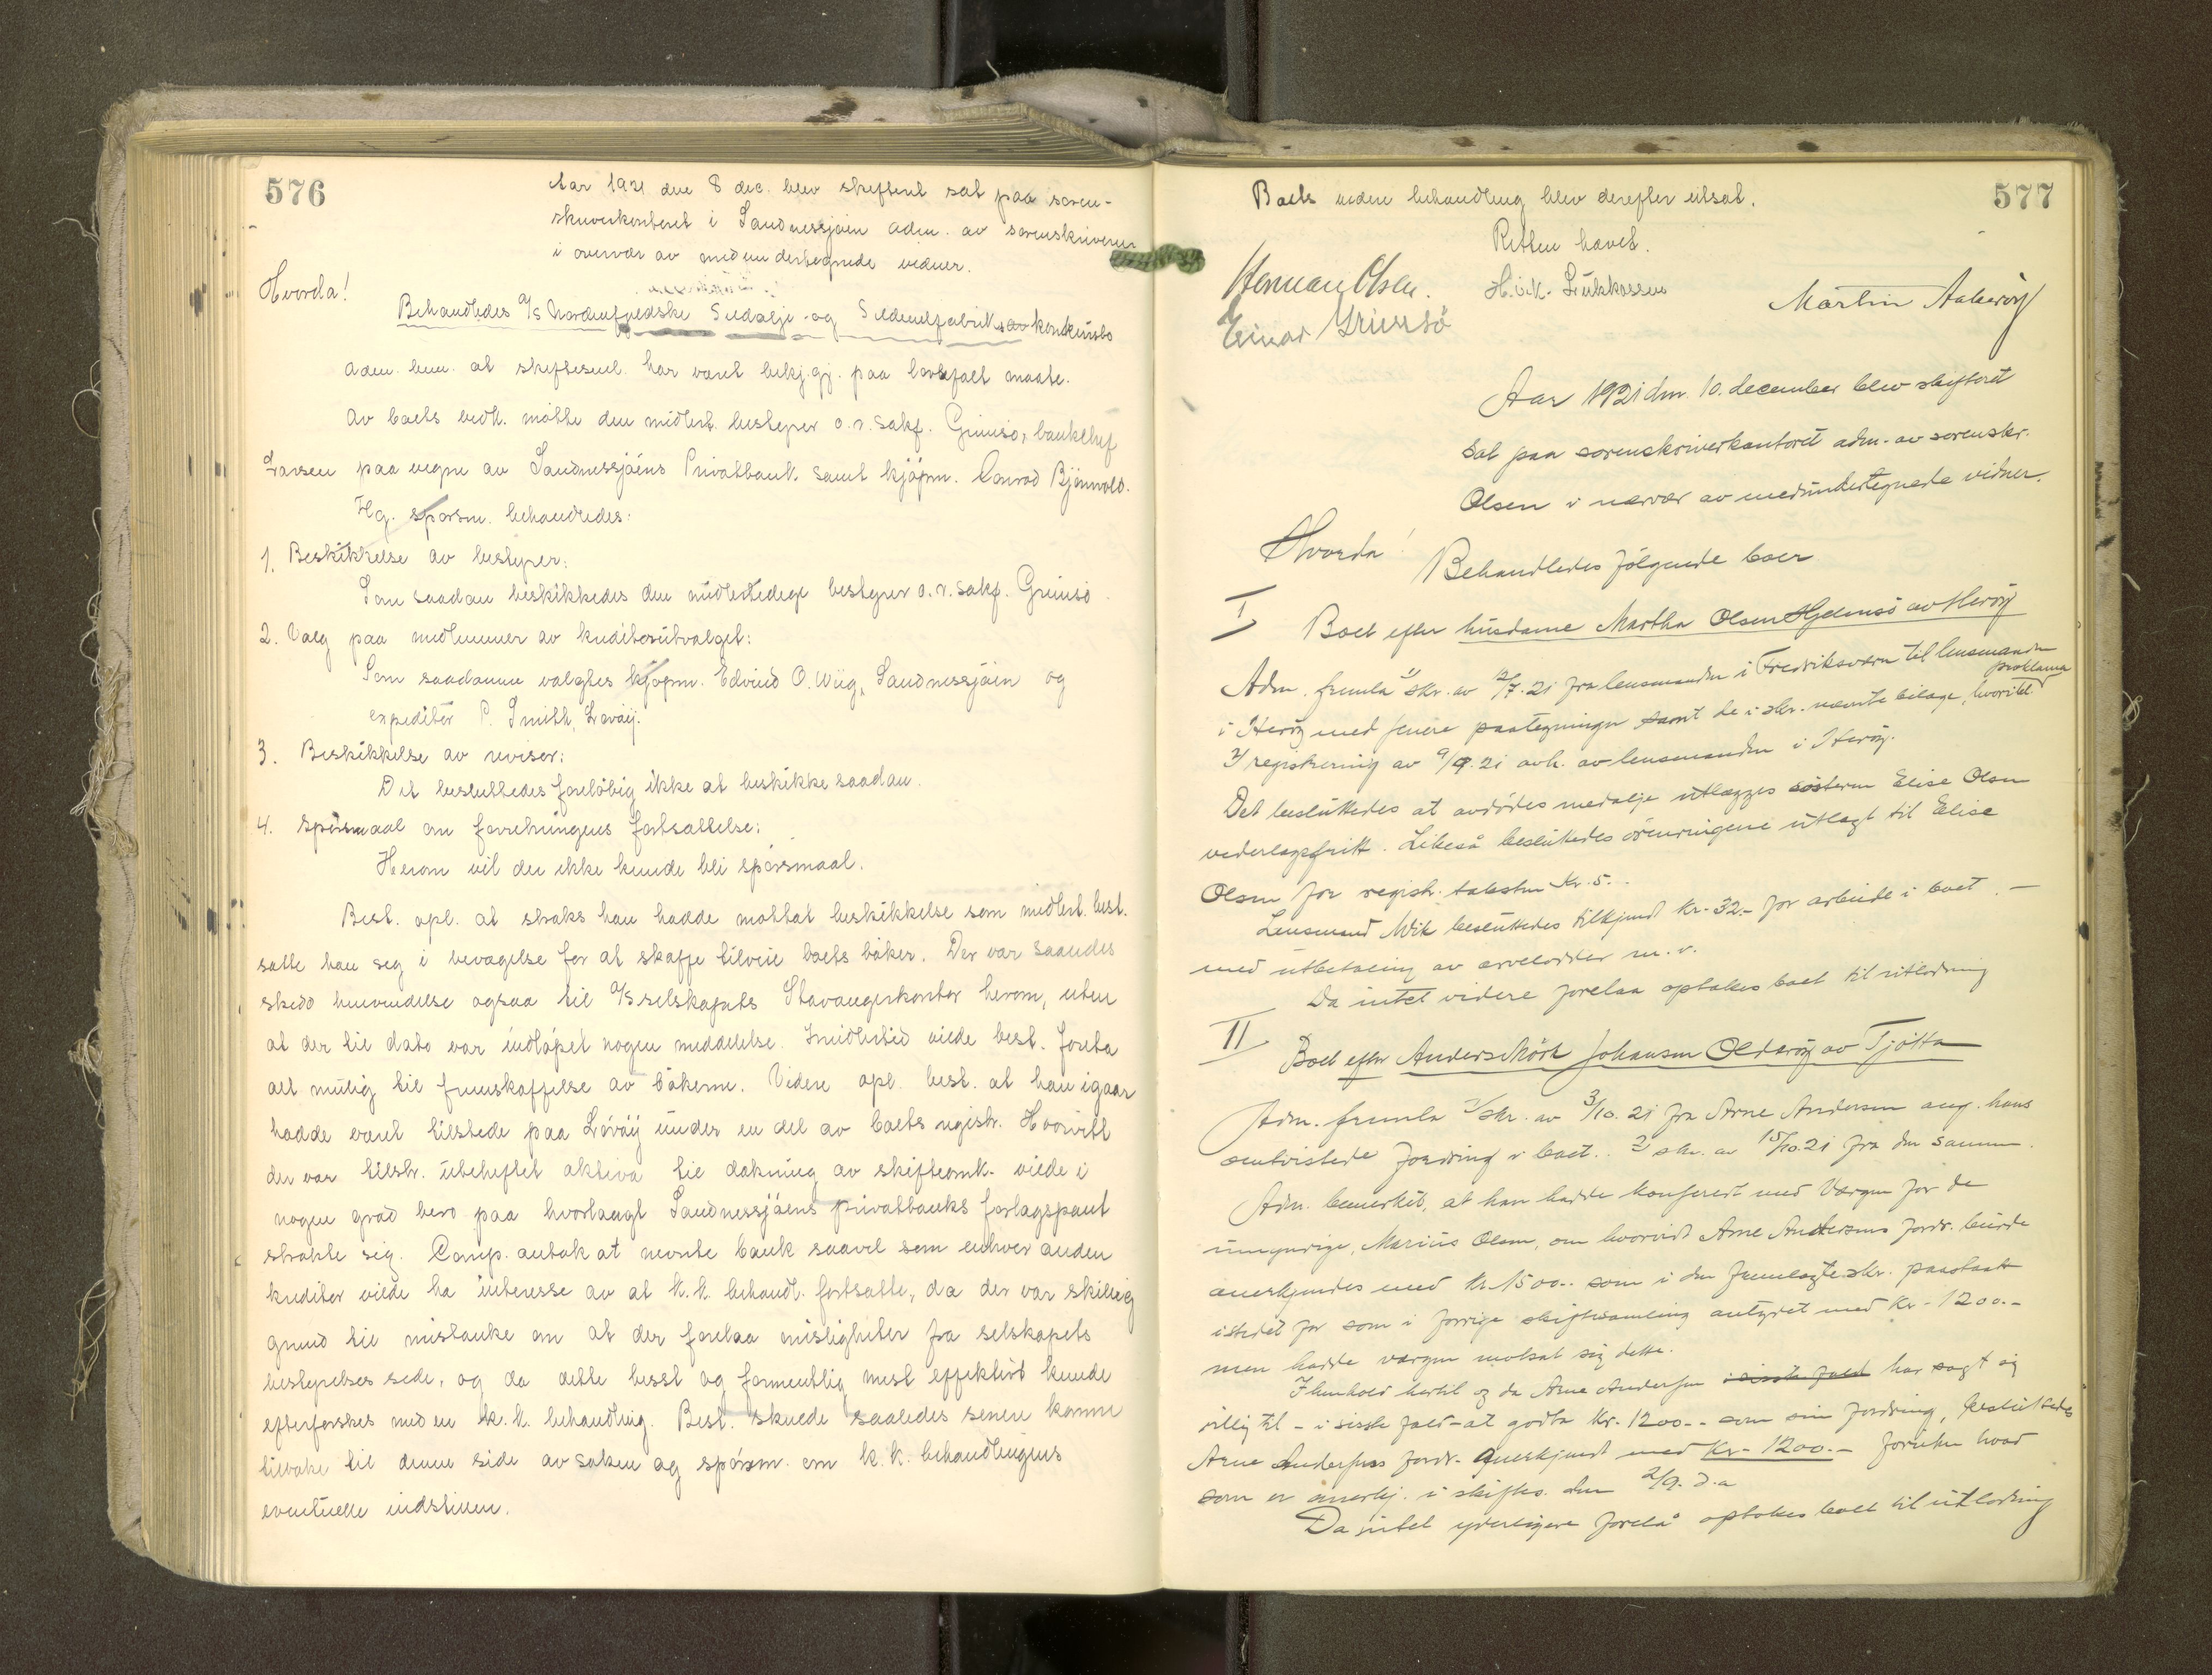 576
Aar 1921 den 8 dec. blev skifteret sat paa soren-
skriverkontoret i Sandnessjøen adm. av sorenskriveren
i overvær av medundertegnede vidner.
Hvorda!
Behandledes A/S Nordenfjeldske Sildolje- og Sildemelfabriks konkursbo
Adm. bem. at skiftesml. har været bekj.gj. paa lovbefalt maate.
Av boets vedk. møtte den midlert. bestyrer o.r.sakf. Grimsø, bankchef
Larsen paa vegne av Sandnessjøens Privatbank samt kjøpm. Conrad Bjørnvold.
Flg. spørsm. behandledes:
1. Beskikkelse av bestyrer:
Som saadan beskikkedes den midlertidige bestyrer o.r.sakf. Grimsø.
2. Valg paa medlemmer av kreditorutvalget:
Som saadanne valgtes kjøpm. Edvind O. Wiig, Sandnessjøen og
expeditør P. Smith, Løvøy.
3. Beskikkelse av revisor:
Det besluttedes foreløbig ikke at beskikke saadan.
4. Spørsmaal om forretningens fortsættelse:
Herom vil der ikke kunde bli spørsmaal.
Best. opl. at straks han hadde mottat beskikkelse som midlert. best.
satte han seg i bevægelse for at skaffe tilveie boets bøker. Der var saaledes
skedd henvendelse ogsaa til A/S selskapets Stavangerkontor herom, uten
at der til dato var indløpet nogen meddelelse. Imidlertid vilde best. foreta
alt mulig til fremskaffelse av bøkerne. Videre opl. best. at han igaar
hadde været tilstede paa Løvøy under en del av boets registr. Hvorvidt
der var tilstr. ubeheftet aktiva til dækning av skifteomk. vilde i
nogen grad bero paa hvorlangt Sandnessjøens privatbanks forlagspant
strakte sig. Comp. antok at nevnte bank saavel som enhver anden
kreditor vilde ha interesse av at k.k. behandl. fortsatte, da der var skjellig
grund til mistanke om at der forelaa misligheter fra selskapets
bestyrelses side, og da dette besst og formentlig mest effektivt kunde
efterforskes med en k.k. behandling. Best. skulde saaledes senere komme
tilbake til denne side av saken og spørsm. om k.k. behandlingens
eventuelle indstillen.
577
Boets videre behandling blev derefter utsat.
Retten hævet.
Herman Olsen.
H.v.k. Lukkassen
Martin Aakerøy
Einar Grimsø
Aar 1921 den 10. december blev skifteret
sat paa sorenskriverkontoret adm. av sorenskr.
Olsen i nærvær av medundertegnede vidner.
Hvorda!
Behandledes følgende boer
I
Boet efter husdame Martha Olsen Hjelmsø av Herøy
Adm. fremla 1/ skr. av 12/7. 21 fra lensmanden i Fredriksværn til lensmanden
i Herøy med senere paategninger samt de i skr. nævnte bilage, hvoriblt. proklama
2/ registrering av 9/9. 21 avh. av lensmanden i Herøy.
Det besluttedes at avdødes medalje utlægges søsteren Elise Olsen
vederlagsfritt. Likeså besluttedes ørenringene utlagt til Elise
Olsen for registr. taksten Kr. 5.-
Lensmand Wik besluttedes tilkjendt Kr. 32.- for arbeide i boet -
med utbetaling av arvelodder m.v.
Da intet videre forelaa optakes boet til utlodning
II
Boet efter Anders Mørk Johansen Olderøy av Tjøtta
Adm. fremla 1/ skr. av 3/10. 21 fra Arne Andersen ang. hans
omtvistede fordring i boet. 2/ skr. av 15/10. 21 fra den samme.
Adm. bemerket, at han hadde konferert med Værgen for de
umyndige, Marius Olsen, om hvorvidt Arne Andersens fordr. burde
anerkjendes med Kr. 1500.- som i den fremlagte skr. paastaat
istedet for som i forrige skiftesamling antydet med Kr. 1200.-
men hadde værgen motsat sig dette.
I henhold hertil og da Arne Andersen i siste fald har sagt sig
villig til - i siste fald - at godta Kr. 1200.- som sin fordring, besluttedes
Arne Andersens fordr. anerkjendt med Kr. 1200.- foruten hvad
som er anerkj. i skiftes. den 2/9. d.a
Da intet yderligere forelå optakes boet til utlodning